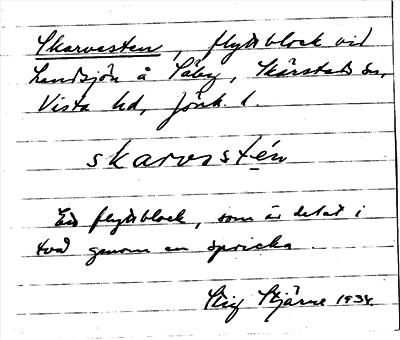 Skarvasten, flyttblock vid
Landsjön å Säby, Skärstads sn,
Vista hd, Jönk. l.
skarvsstén
Ett flyttblock, som är delat i
två genom en spricka.
Stig Stjärne 1934.